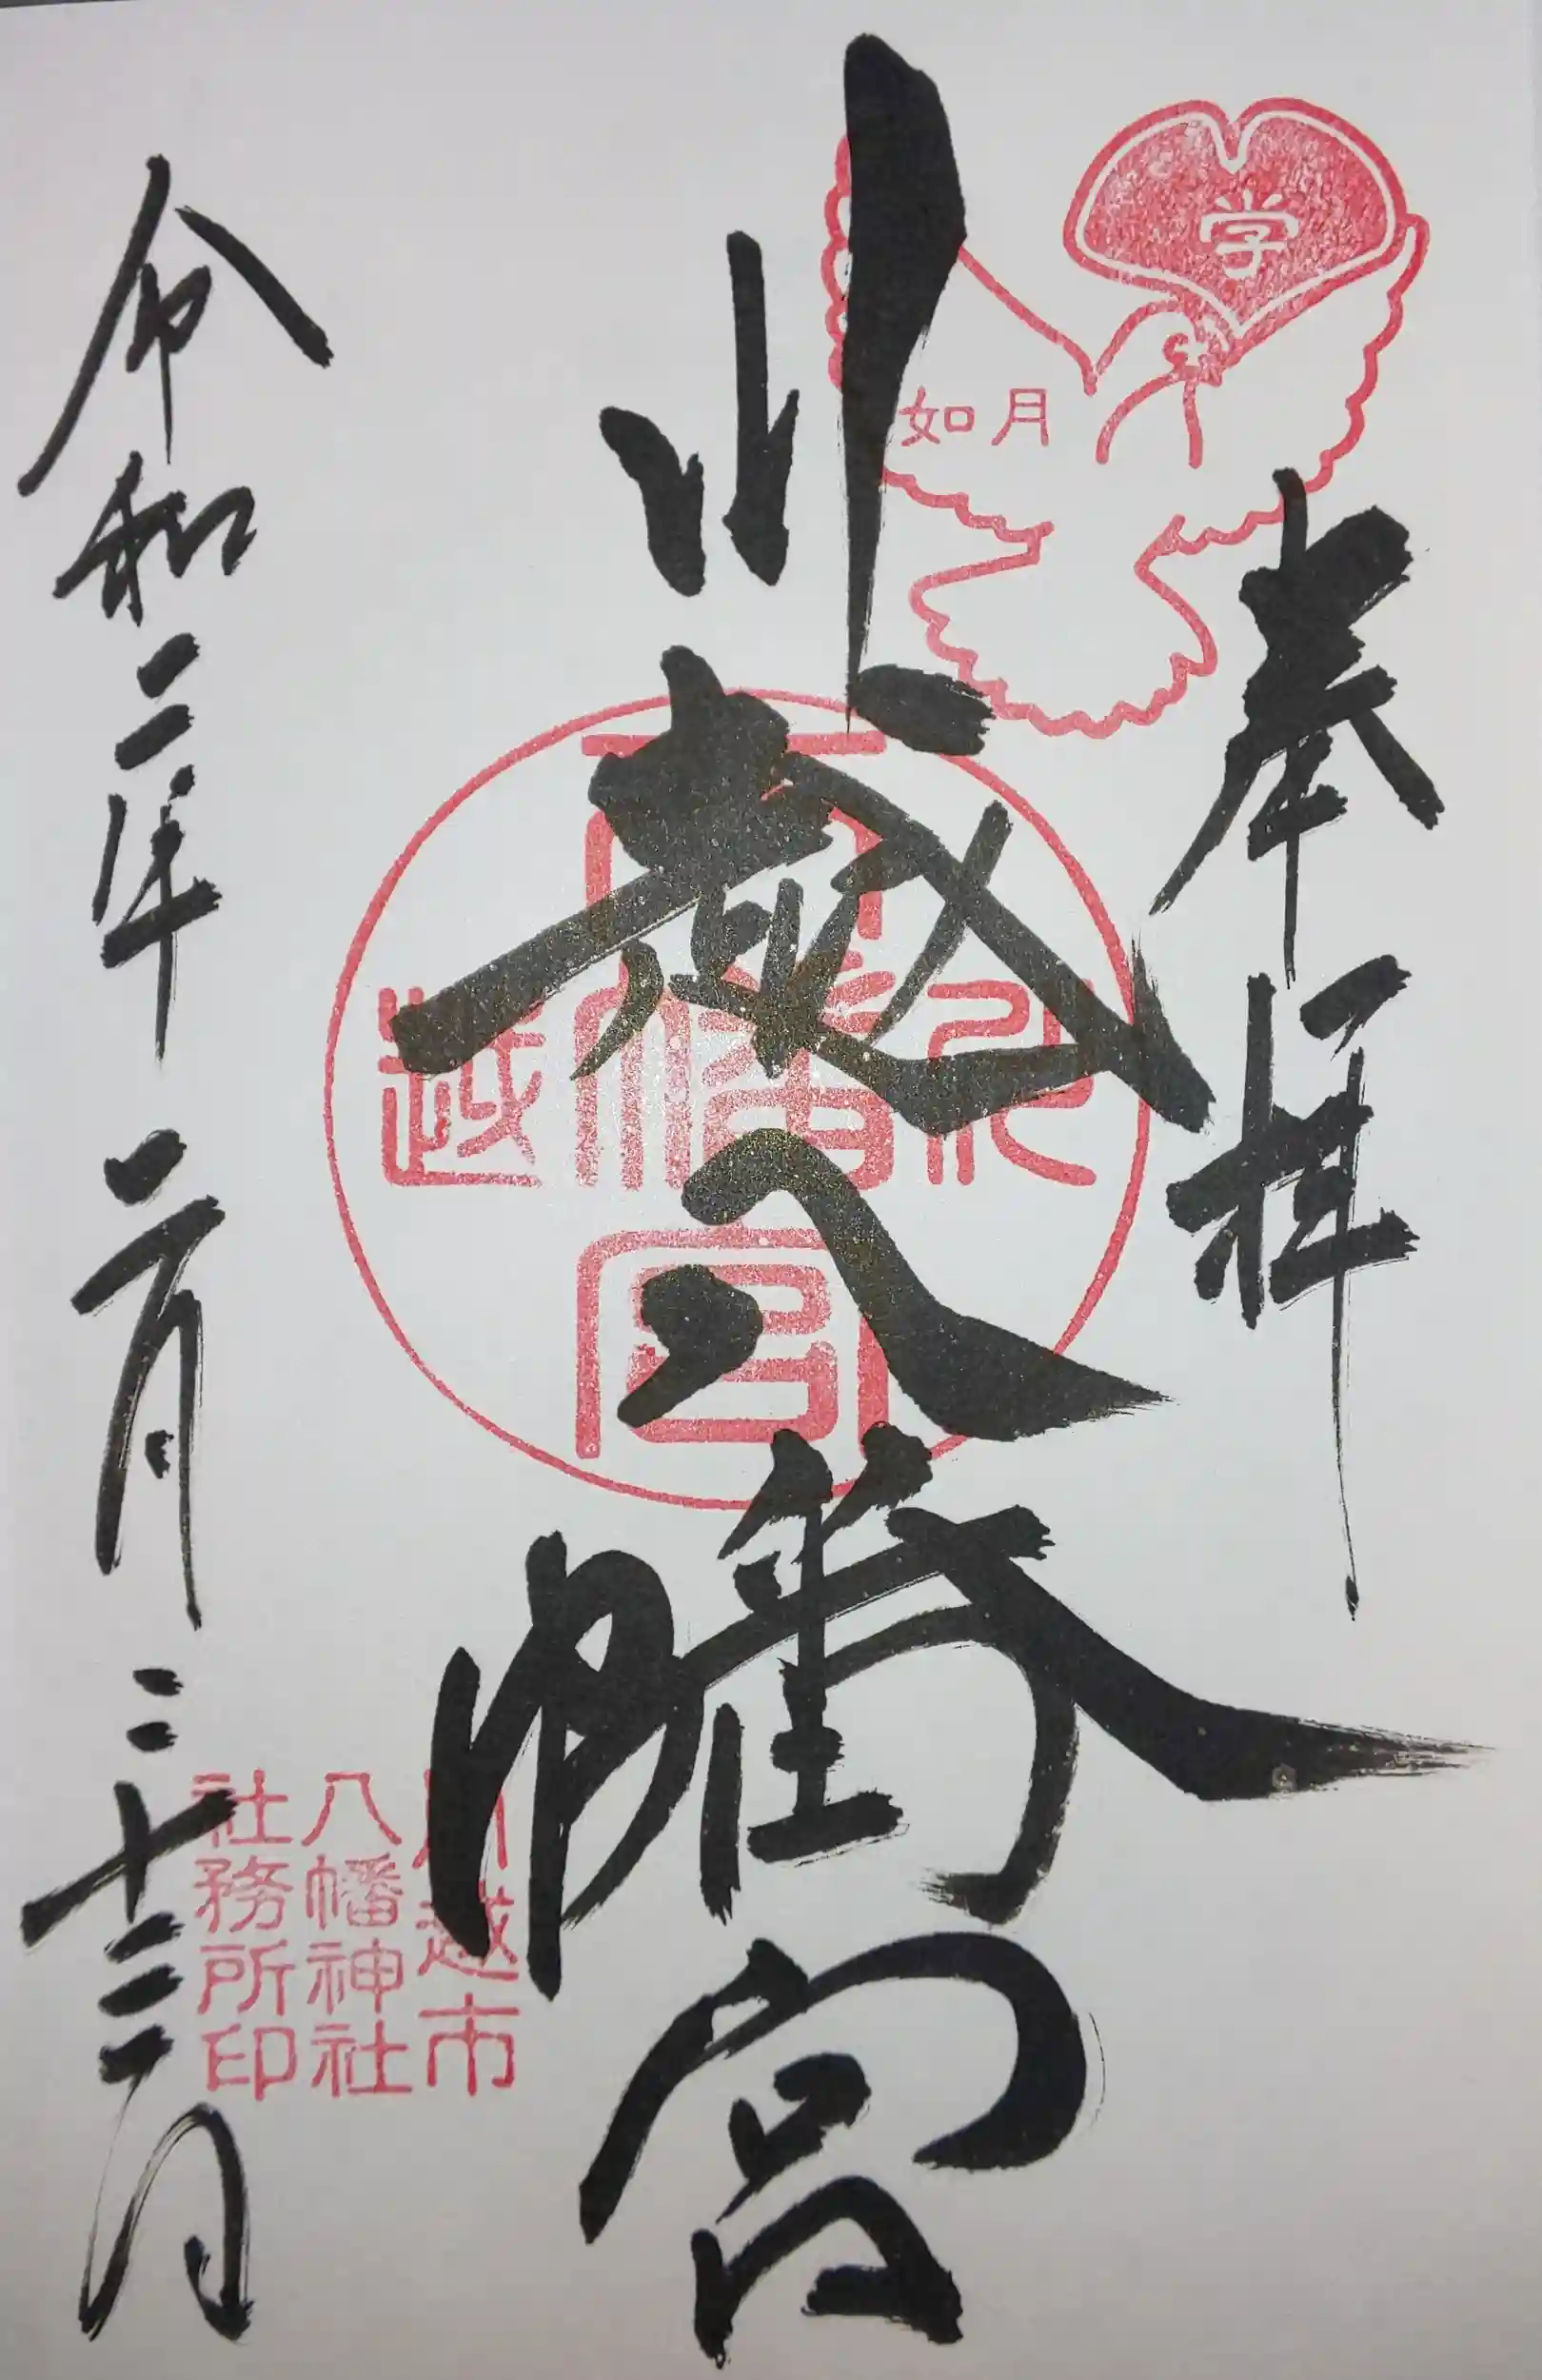 学
如月
奉拝
川越八幡宮
令和二年二月二十三日
幡宮
越
川越市
八幡神社
社務所印